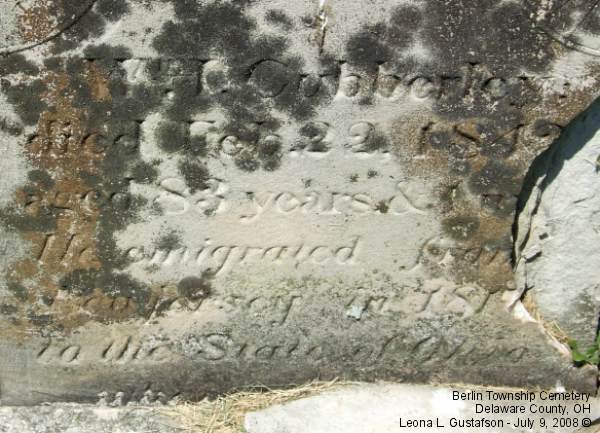 Wm. I. Cubberley,
died Feb. 22, 1842
aged 83 years, & 1
He emigrated from
New jersey in 181
to the State of Ohio
Berlin Township Cemetery
Delaware County, OH
Leona L. Gustafson - July 9, 2008 ©